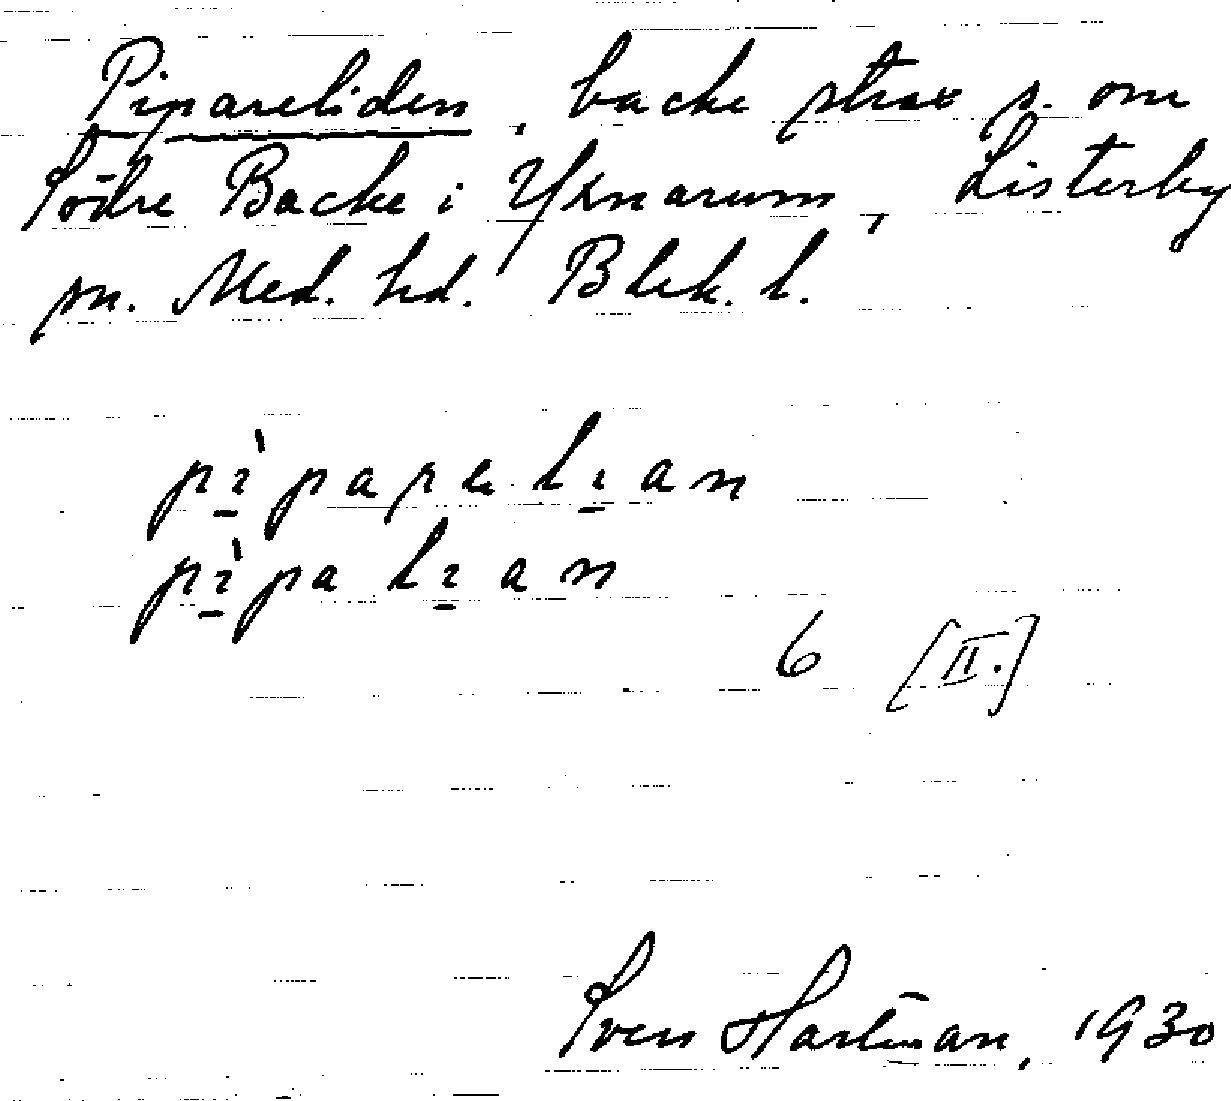 Pipareliden, backe strax s. om
Södre Backe i Yxnarum, Listerby
sn. Med. hd. Blek. l.
pì̱parəlı̱an
pì̱palı̱an
6 [II.]
Sven Hartman, 1930